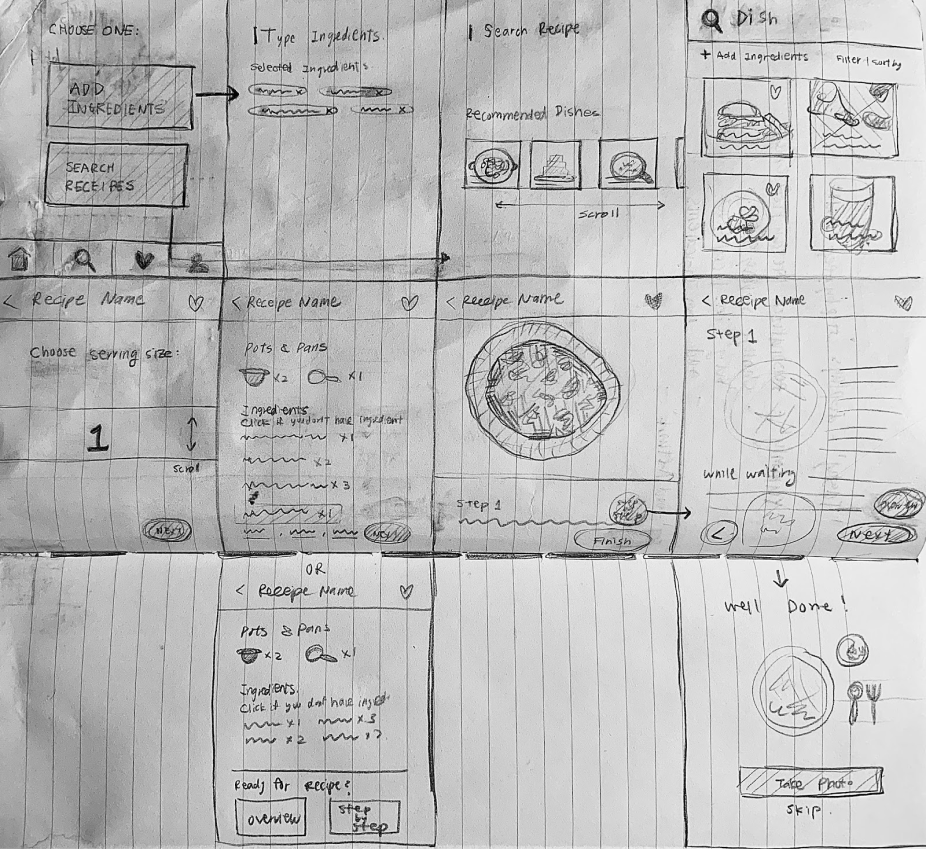 CHOOSE ONE:
ADD
INGREDIENTS
SEARCH
RECEIPES
Type Ingredients.
Selected Ingredients
x
x
x
x
Search Recipe
Recommended Dishes
scroll
Dish
+ Add Ingredients
Filter | Sort by
< Recipe Name
Choose serving size:
1
Scroll
NEXT
< Receipe Name
Pots & Pans
x2
x1
Ingredients
Click if you don't have ingredient
x1
x2
x3
x1
NEXT
< Receipe Name
Step 1
step
by
step
Finish
< Receipe Name
Step 1
while waiting
<
Next
OR
< Receipe Name
Pots & Pans
x2
x1
Ingredients.
Click if you don't have
x1
x3
x2
x2
Ready for Recipe?
overview
step
by
step
Well Done!
Take Photo
skip.